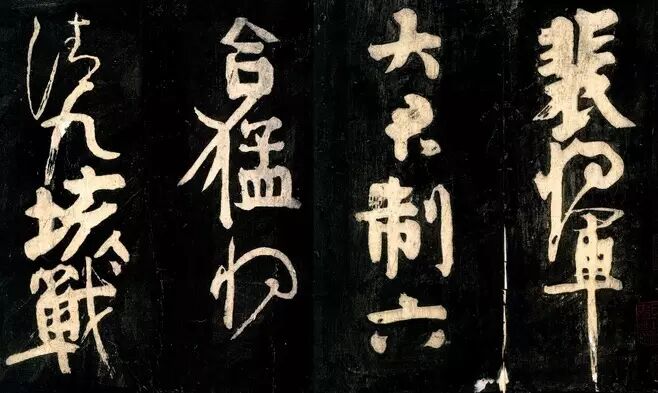 裴将軍
大君制六
合猛将
清九垓戰